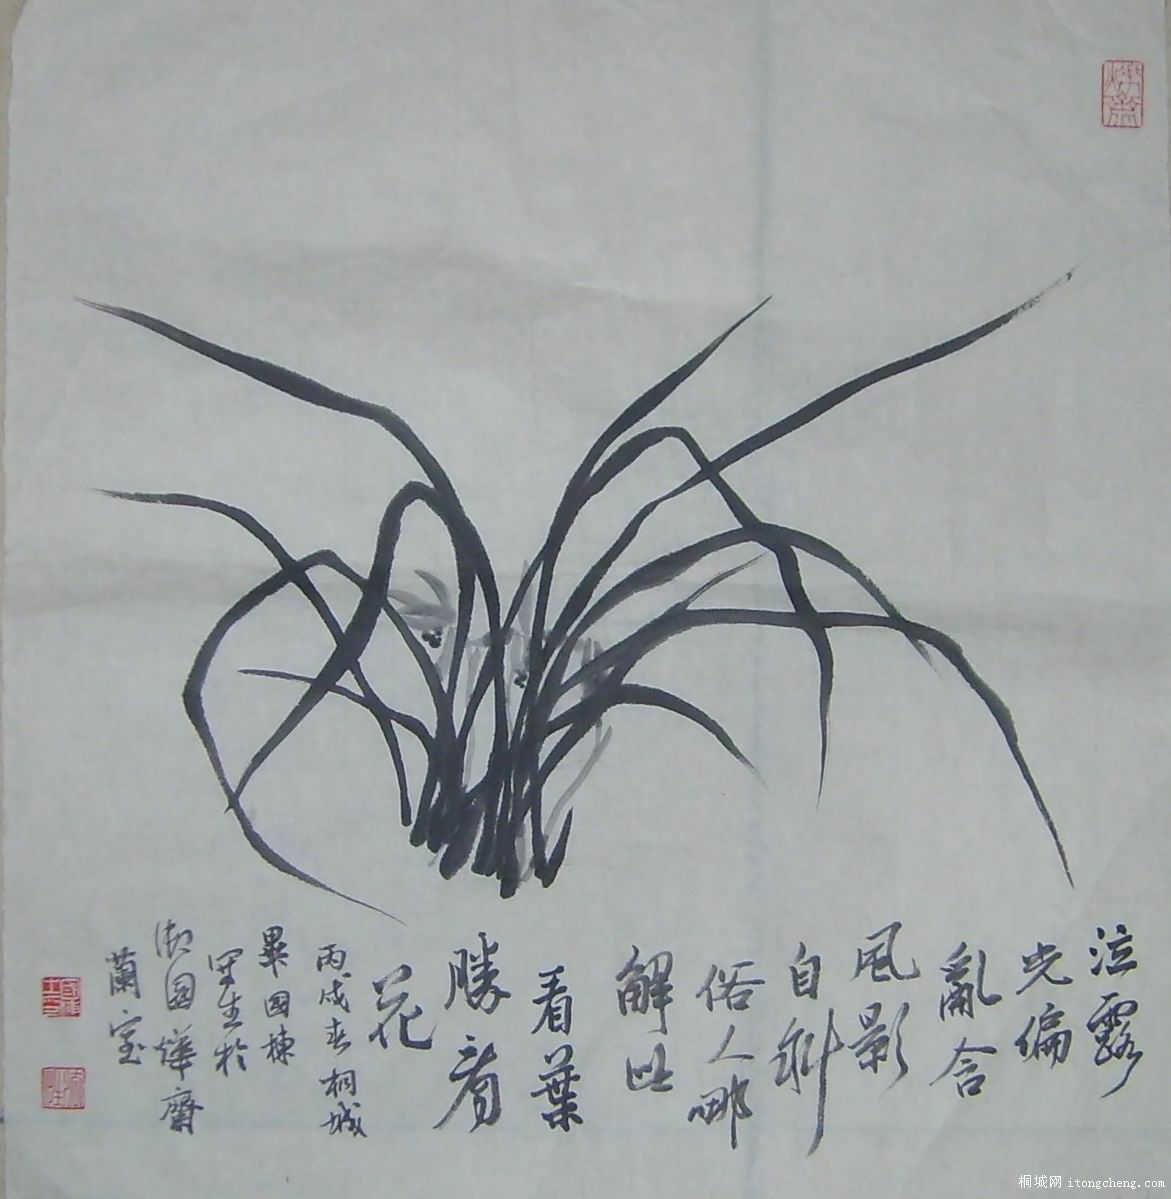 泣露
光偏
亂合
風影
自斜
俗人哪
解此
看葉
勝看
花
丙戌春桐城
畢國棟
罕生於
御園燁齋
蘭室
桐城网 itongcheng.com